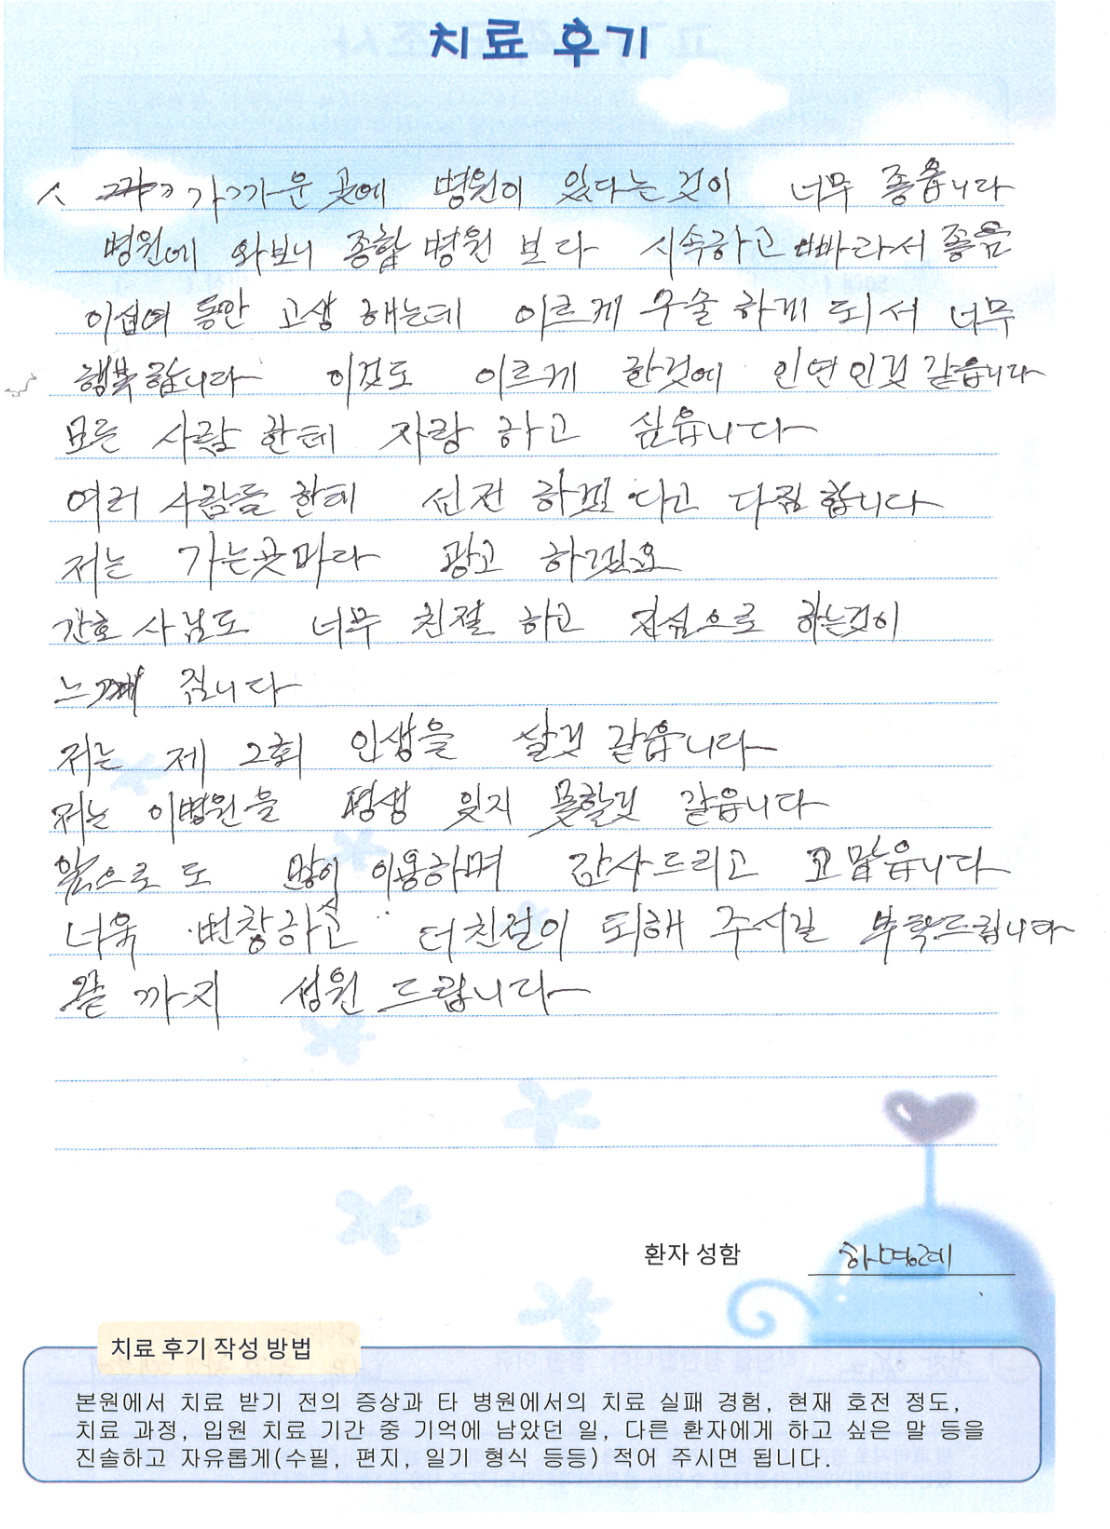 치료 후기
가까운 곳에 병원이 있다는 것이 너무 좋읍니다
병원에 와보니 종합 병원 보다 시속하고 빠라서 좋음
이십여 동안 고생 해는데 이르게 수술 하게 되서 너무
행복 합니다 이것도 이르게 한것에 인연 인것 같읍니다
모든 사람 한테 자랑 하고 싶읍니다
여러 사람들 한테 선전 하겠 다고 다짐 합니다
저는 가는곳마다 광고 하겠요
간호 사님도 너무 친절 하고 진심으로 하는것이
느껴 짐니다
저는 제 2회 인생을 살것 같읍니다
저는 이병원을 평생 잊지 못할것 같읍니다
앞으로 도 많이 이용하며 감사드리고 고맙읍니다
너욱 번창하고 더친절이 되해 주시길 부탁드립니다
끝 까지 성원 드립니다
환자 성함 한명례
치료 후기 작성 방법
본원에서 치료 받기 전의 증상과 타 병원에서의 치료 실패 경험, 현재 호전 정도,
치료 과정, 입원 치료 기간 중 기억에 남았던 일, 다른 환자에게 하고 싶은 말 등을
진솔하고 자유롭게(수필, 편지, 일기 형식 등등) 적어 주시면 됩니다.